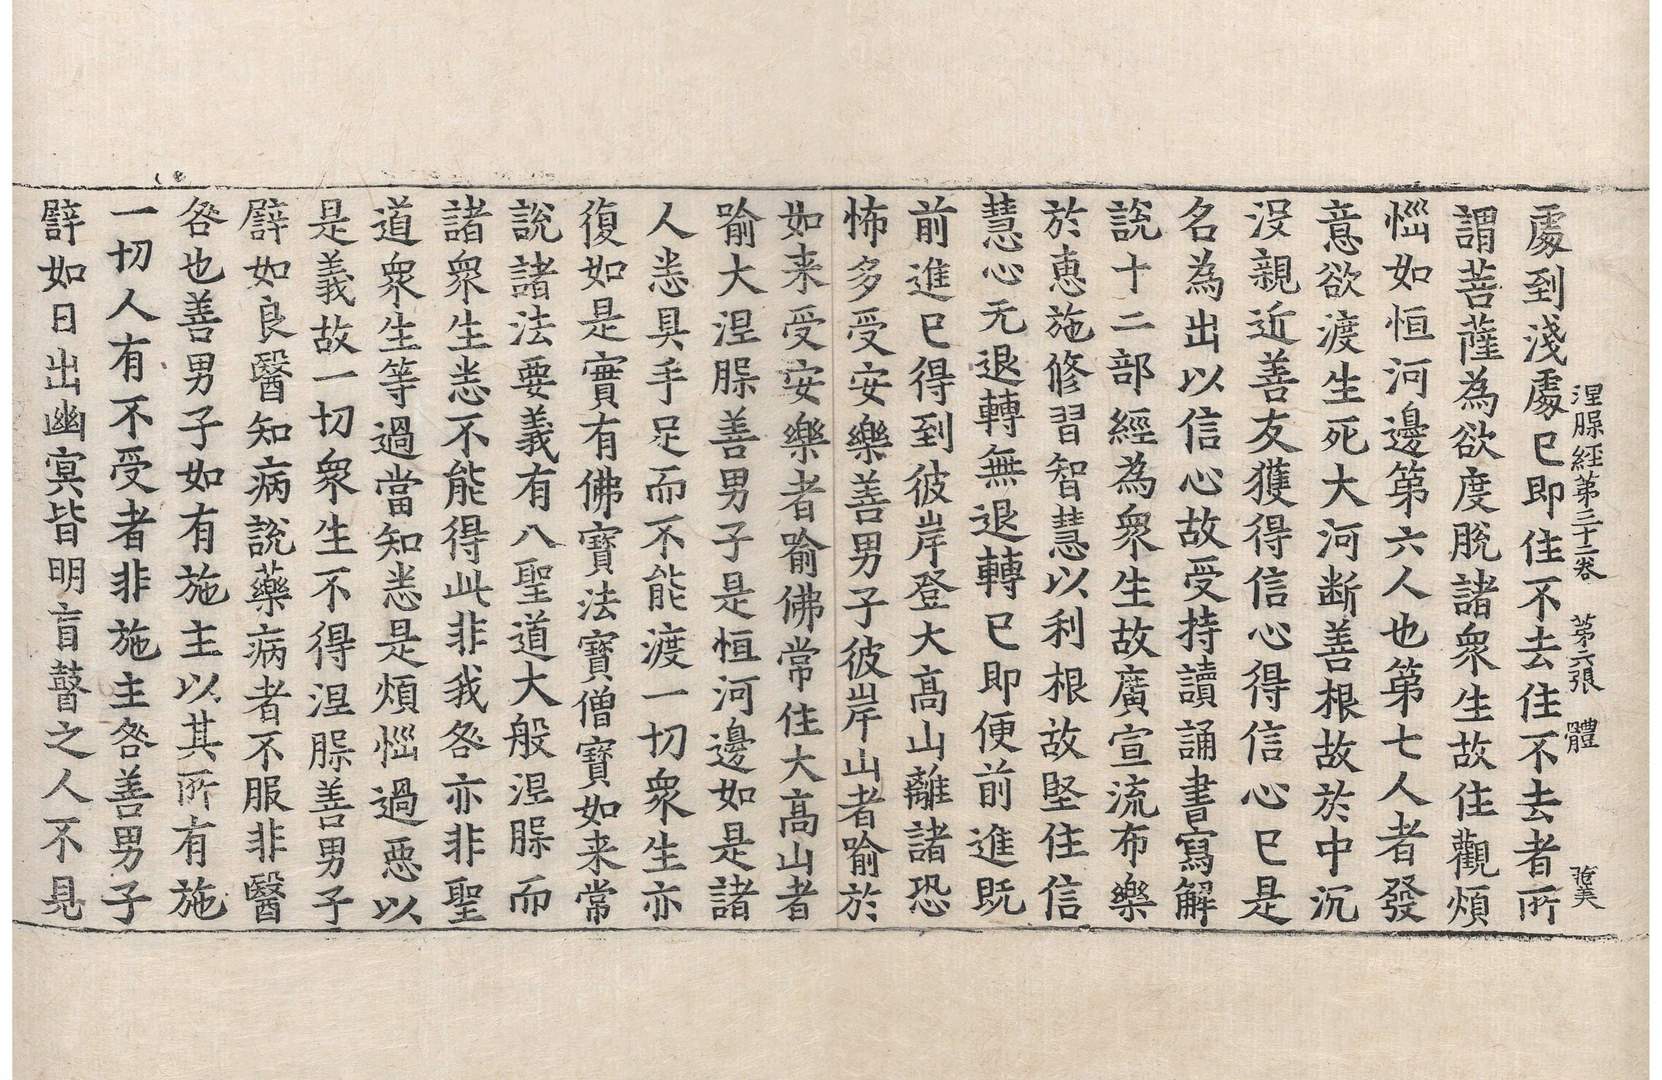 涅槃經第三十二卷 第六張 體
處到淺處已即住不去住不去者所
謂菩薩為欲度脫諸衆生故住觀煩
惱如恒河邊第六人也第七人者發
意欲渡生死大河断善根故於中沉
沒親近善友獲得信心得信心已是
名為出以信心故受持讀誦書寫解
說十二部經為衆生故廣宣流布樂
於惠施修習智慧以利根故堅住信
慧心无退轉無退轉已即便前進既
前進已得到彼岸登大高山離諸恐
怖多受安樂善男子彼岸山者喻於
如来受安樂者喻佛常住大高山者
喻大涅槃善男子是恒河邊如是諸
人悉具手足而不能渡一切衆生亦
復如是實有佛寶法寶僧寶如来常
說諸法要義有八聖道大般涅槃而
諸衆生悉不能得此非我咎亦非聖
道衆生等過當知悉是煩惱過惡以
是義故一切衆生不得涅槃善男子
譬如良醫知病說藥病者不服非醫
咎也善男子如有施主以其所有施
一切人有不受者非施主咎善男子
譬如日出幽冥皆明盲瞽之人不見